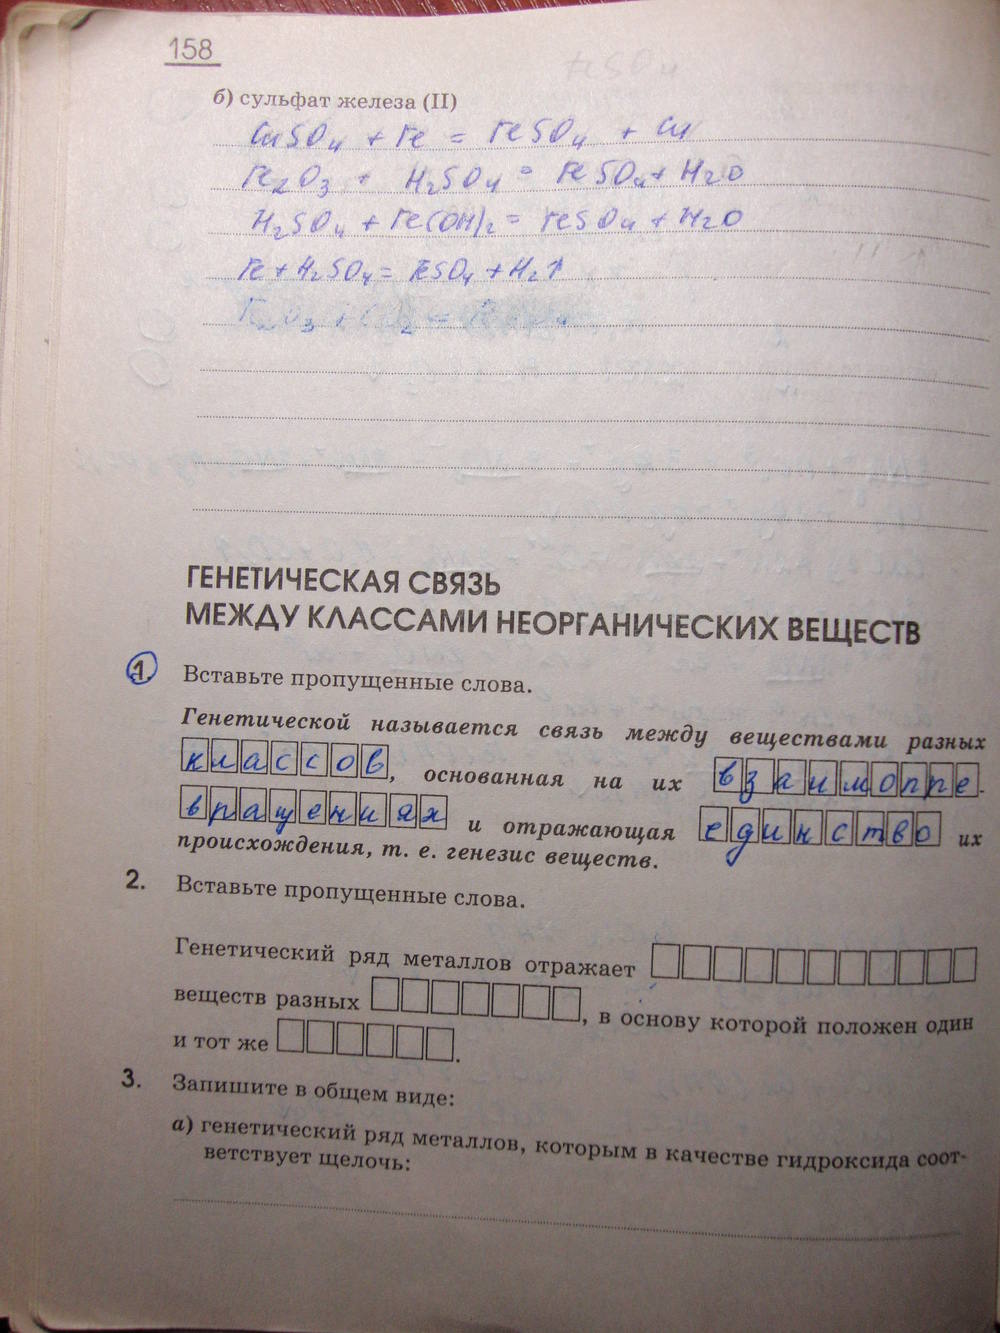 158
б) сульфат железа (II)
CuSO4 + Fe = FeSO4 + Cu
Fe2O3 + H2SO4 = FeSO4 + H2O
H2SO4 + Fe(OH)2 = FeSO4 + H2O
Fe + H2SO4 = FeSO4 + H2↑
ГЕНЕТИЧЕСКАЯ СВЯЗЬ
МЕЖДУ КЛАССАМИ НЕОРГАНИЧЕСКИХ ВЕЩЕСТВ
1. Вставьте пропущенные слова.
Генетической называется связь между веществами разных
классов, основанная на их взаимопре-
вращениях и отражающая единство их
происхождения, т. е. генезис веществ.
2. Вставьте пропущенные слова.
Генетический ряд металлов отражает
веществ разных , в основу которой положен один
и тот же .
3. Запишите в общем виде:
а) генетический ряд металлов, которым в качестве гидроксида соот-
ветствует щелочь: